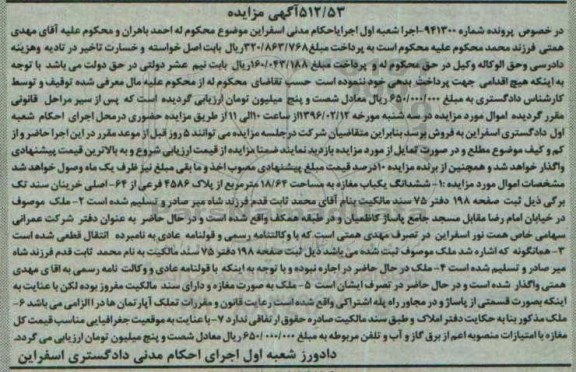 ۵۱۲/۵۳آگهی مزایده
در خصوص پرونده شماره ۹۴۱۳۰۰-اجرا شعبه اول اجرایاحکام مدنی اسفراین موضوع محکوم له احمد باهران و محکوم علیه آقای مهدی
همتی فرزند محمد محکوم علیه محکوم است به پرداخت مبلغ۳۲۰/۸۶۳/۷۶۸ریال بابت اصل خواسته و خسارت تاخیر در تادیه وهزینه
دادرسی وحق الوکاله وکیل در حق محکوم له و پرداخت مبلغ ۱۶/۰۴۳/۱۸۸ریال بابت نیم عشر دولتی در حق دولت می باشد با توجه
به اینکه هیچ اقدامی جهت پرداخت بدهی خود ننموده است حسب تقاضای محکوم له از محکوم علیه مال معرفی شده توقیف و توسط
کارشناس دادگستری به مبلغ ۶۵۰/۰۰۰/۰۰۰ ریال معادل شصت و پنج میلیون تومان ارزیابی گردیده است که پس از سیر مراحل قانونی
مقرر گردیده اموال مورد مزایده در سه شنبه مورخه ۱۳۹۶/۰۲/۱۲از ساعت ۱۰الی ۱۱ از طریق مزایده حضوری درمحل اجرای احکام شعبه
اول دادگستری اسفراین به فروش برسد بنابراین متقاضیان شرکت درجلسه مزایده می توانند ۵ روز قبل از موعد مقرر در این اجرا حاضر و از
کم و کیف موضوع مطلع و در صورت تمایل از مورد مزایده بازدید نمایند ضمنا مزایده از قیمت ارزیابی شروع و به بالاترین قیمت پیشنهادی
واگذار خواهد شد و همچنین از برنده مزایده ۱۰درصد قیمت مبلغ پیشنهادی مصوب اخذ و ما بقی مبلغ نیز ظرف یک ماه وصول خواهد شد
مشخصات اموال مورد مزایده :۱- ششدانگ یکباب مغازه به مساحت ۱۸/۶۴ مترمربع از پلاک ۴۵۸۶ فرعی از ۶۴-اصلی خریتان سند تک
برگی ذیل ثبت صفحه ۱۹۸ دفتر ۷۵ سند مالکیت بنام آقای محمد ثابت قدم فرزند شاه میر صادر و تسلیم شده است ۲- ملک موصوف
در خیابان امام رضا مقابل مسجد جامع پاساژ کاظمیان و در طبقه همکف واقع شده است و در حال حاضر به عنوان دفتر شرکت عمرانی
سهامی خاص همت نور اسفراین در تصرف مهدی همتی است که با وکالتنامه رسمی و قولنامه عادی به نامبرده انتقال قطعی شده است
۳- همانگونه که اشاره شد ملک موصوف ثبت شده می باشد ذیل ثبت صفحه ۱۹۸ دفتر ۷۵ سند مالکیت به نام محمد ثابت قدم فرزند شاه
میر صادر و تسلیم شده است ۴- ملک در حال حاضر در اجاره نبوده و با توجه به اینکه با قولنامه عادی و وکالت نامه رسمی به اقای مهدی
همتی واگذار شده است و در حال حاضر در تصرف ایشان است ۵- ملک به صورت مغازه و دارای سند مالکیت مفروز بوده لکن با عنایت به
اینکه بصورت قسمتی از پاساژ و در مجاور راه پله اشتراکی واقع شده است رعایت قانون و مقررات تملک آپارتمان ها در ا الزامی می باشد ۶-
ملک مذکور بنا به حکایت دفتر املاک و طبق سند مالکیت صادره حقوق ارتفاقی ندارد ۷- با عنایت به موقعیت جغرافیایی مناسب قیمت کل
مغازه با امتیازات منصوبه اعم از برق گاز و آب و تلفن مربوطه به مبلغ ۶۵۰/۰۰۰/۰۰۰ ریال معادل شصت و پنج میلیون تومان ارزیابی می گردد.
دادورز شعبه اول اجرای احکام مدنی دادگستری اسفراین